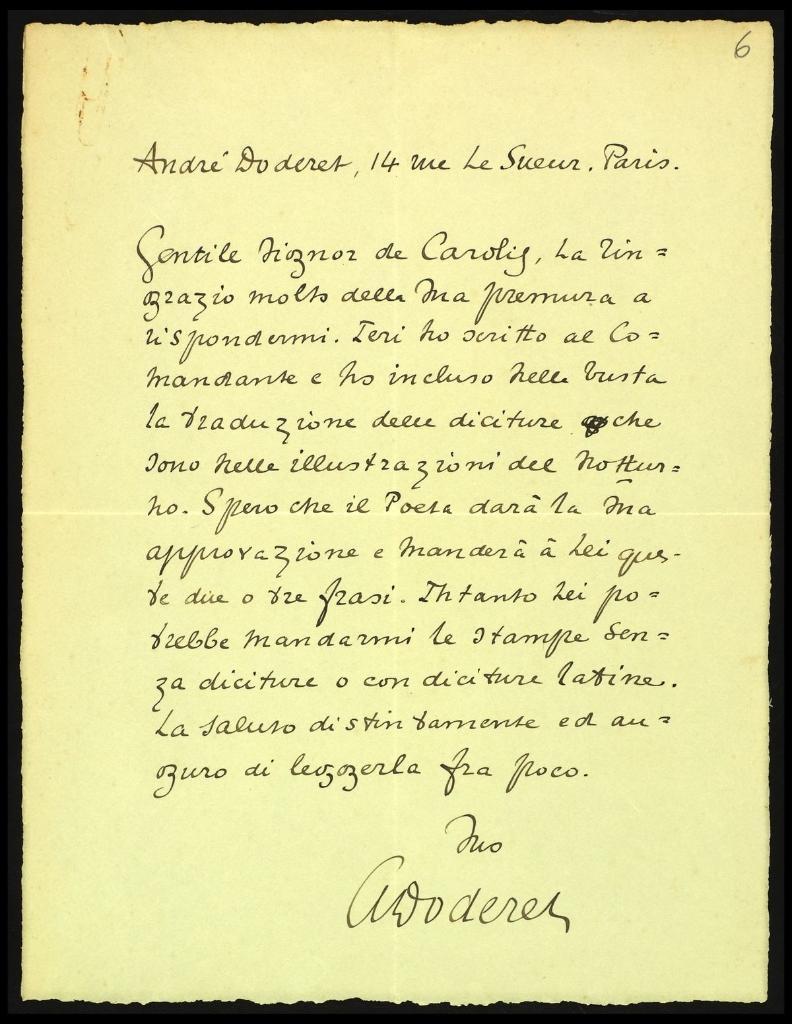 6
André Doderet, 14 rue Le Sueur. Paris.
Gentile Signor de Carolis, La rin=
grazio molto della Sua premura a
rispondermi. Ieri ho scritto al Co=
mandante e ho incluso nella busta
la traduzione delle diciture che
sono nelle illustrazioni del Nottur=
no. Spero che il Poeta darà la Sua
approvazione e manderà à Lei ques-
te due o tre frasi. Intanto Lei po=
trebbe mandarmi le stampe sen=
za diciture o con diciture latine.
La saluto distintamente ed au=
guro di leggerla fra poco.
Suo
ADoderet